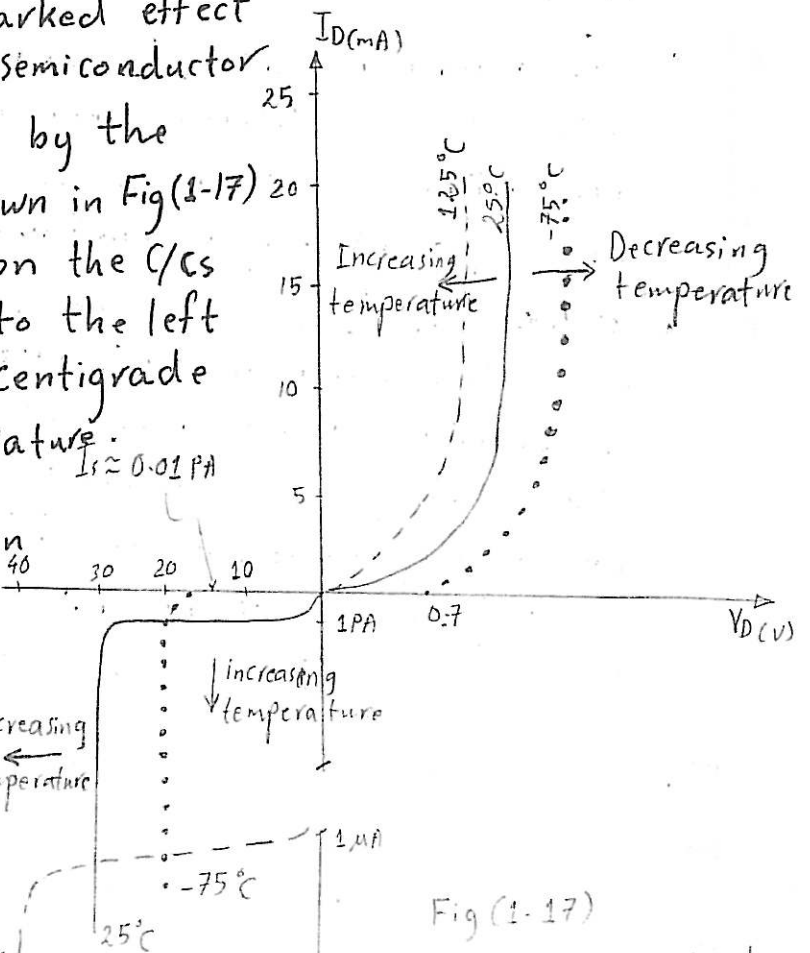 arked effect
semiconductor.
by the
wn in Fig(1-17)
on the C/cs
to the left
centigrade
ature.
Is ≈ 0.01 PA
n
ID(mA)
25
20
15
10
5
125°C
25°C
-75°C
Increasing
temperature
Decreasing
temperature
40 30 20 10
0.7
VD(V)
1PA
increasing
temperature
creasing
perature
1 µA
-75°C
25°C
Fig (1-17)